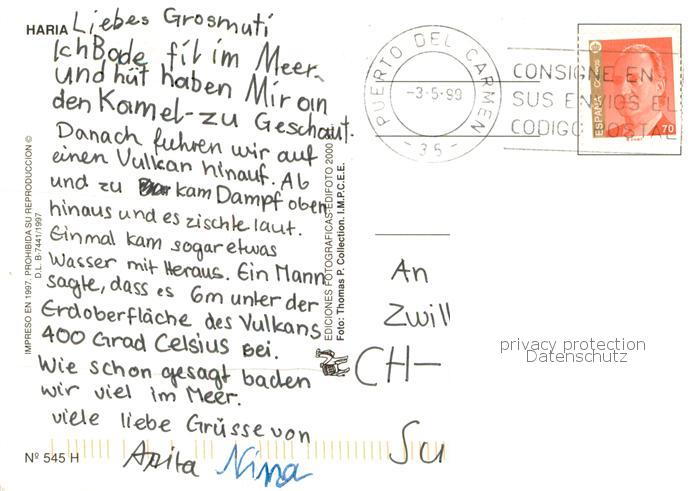 HARIA
Liebes Grosmuti
Ich Bade fil im Meer
und hüt haben Mir an
den Kamel-zu Geschaut.
Danach fuhren wir auf
einen Vulkan hinauf. Ab
und zu kam Dampf oben
hinaus und es zischte laut.
Einmal kam sogar etwas
Wasser mit Heraus. Ein Mann
sagte, dass es 6m unter der
Erdoberfläche des Vulkans
400 Grad Celsius sei.
Wie schon gesagt baden
wir viel im Meer.
viele liebe Grüsse von
Anita Nina
Nº 545 H
IMPRESO EN 1997. PROHIBIDA SU REPRODUCCION ©
D.L. B-7441/1997
EDICIONES FOTOGRAFICAS-EDIFOTO 2000
Foto: Thomas P. Collection. I.M.P.C.E.E.
PUERTO DEL CARMEN
-3-5-99
-35-
CONSIGNE EN
SUS ENVIOS EL
CODIGO POSTAL
ESPAÑA
Correos
70
An
Zwill
CH-
Su
privacy protection
Datenschutz